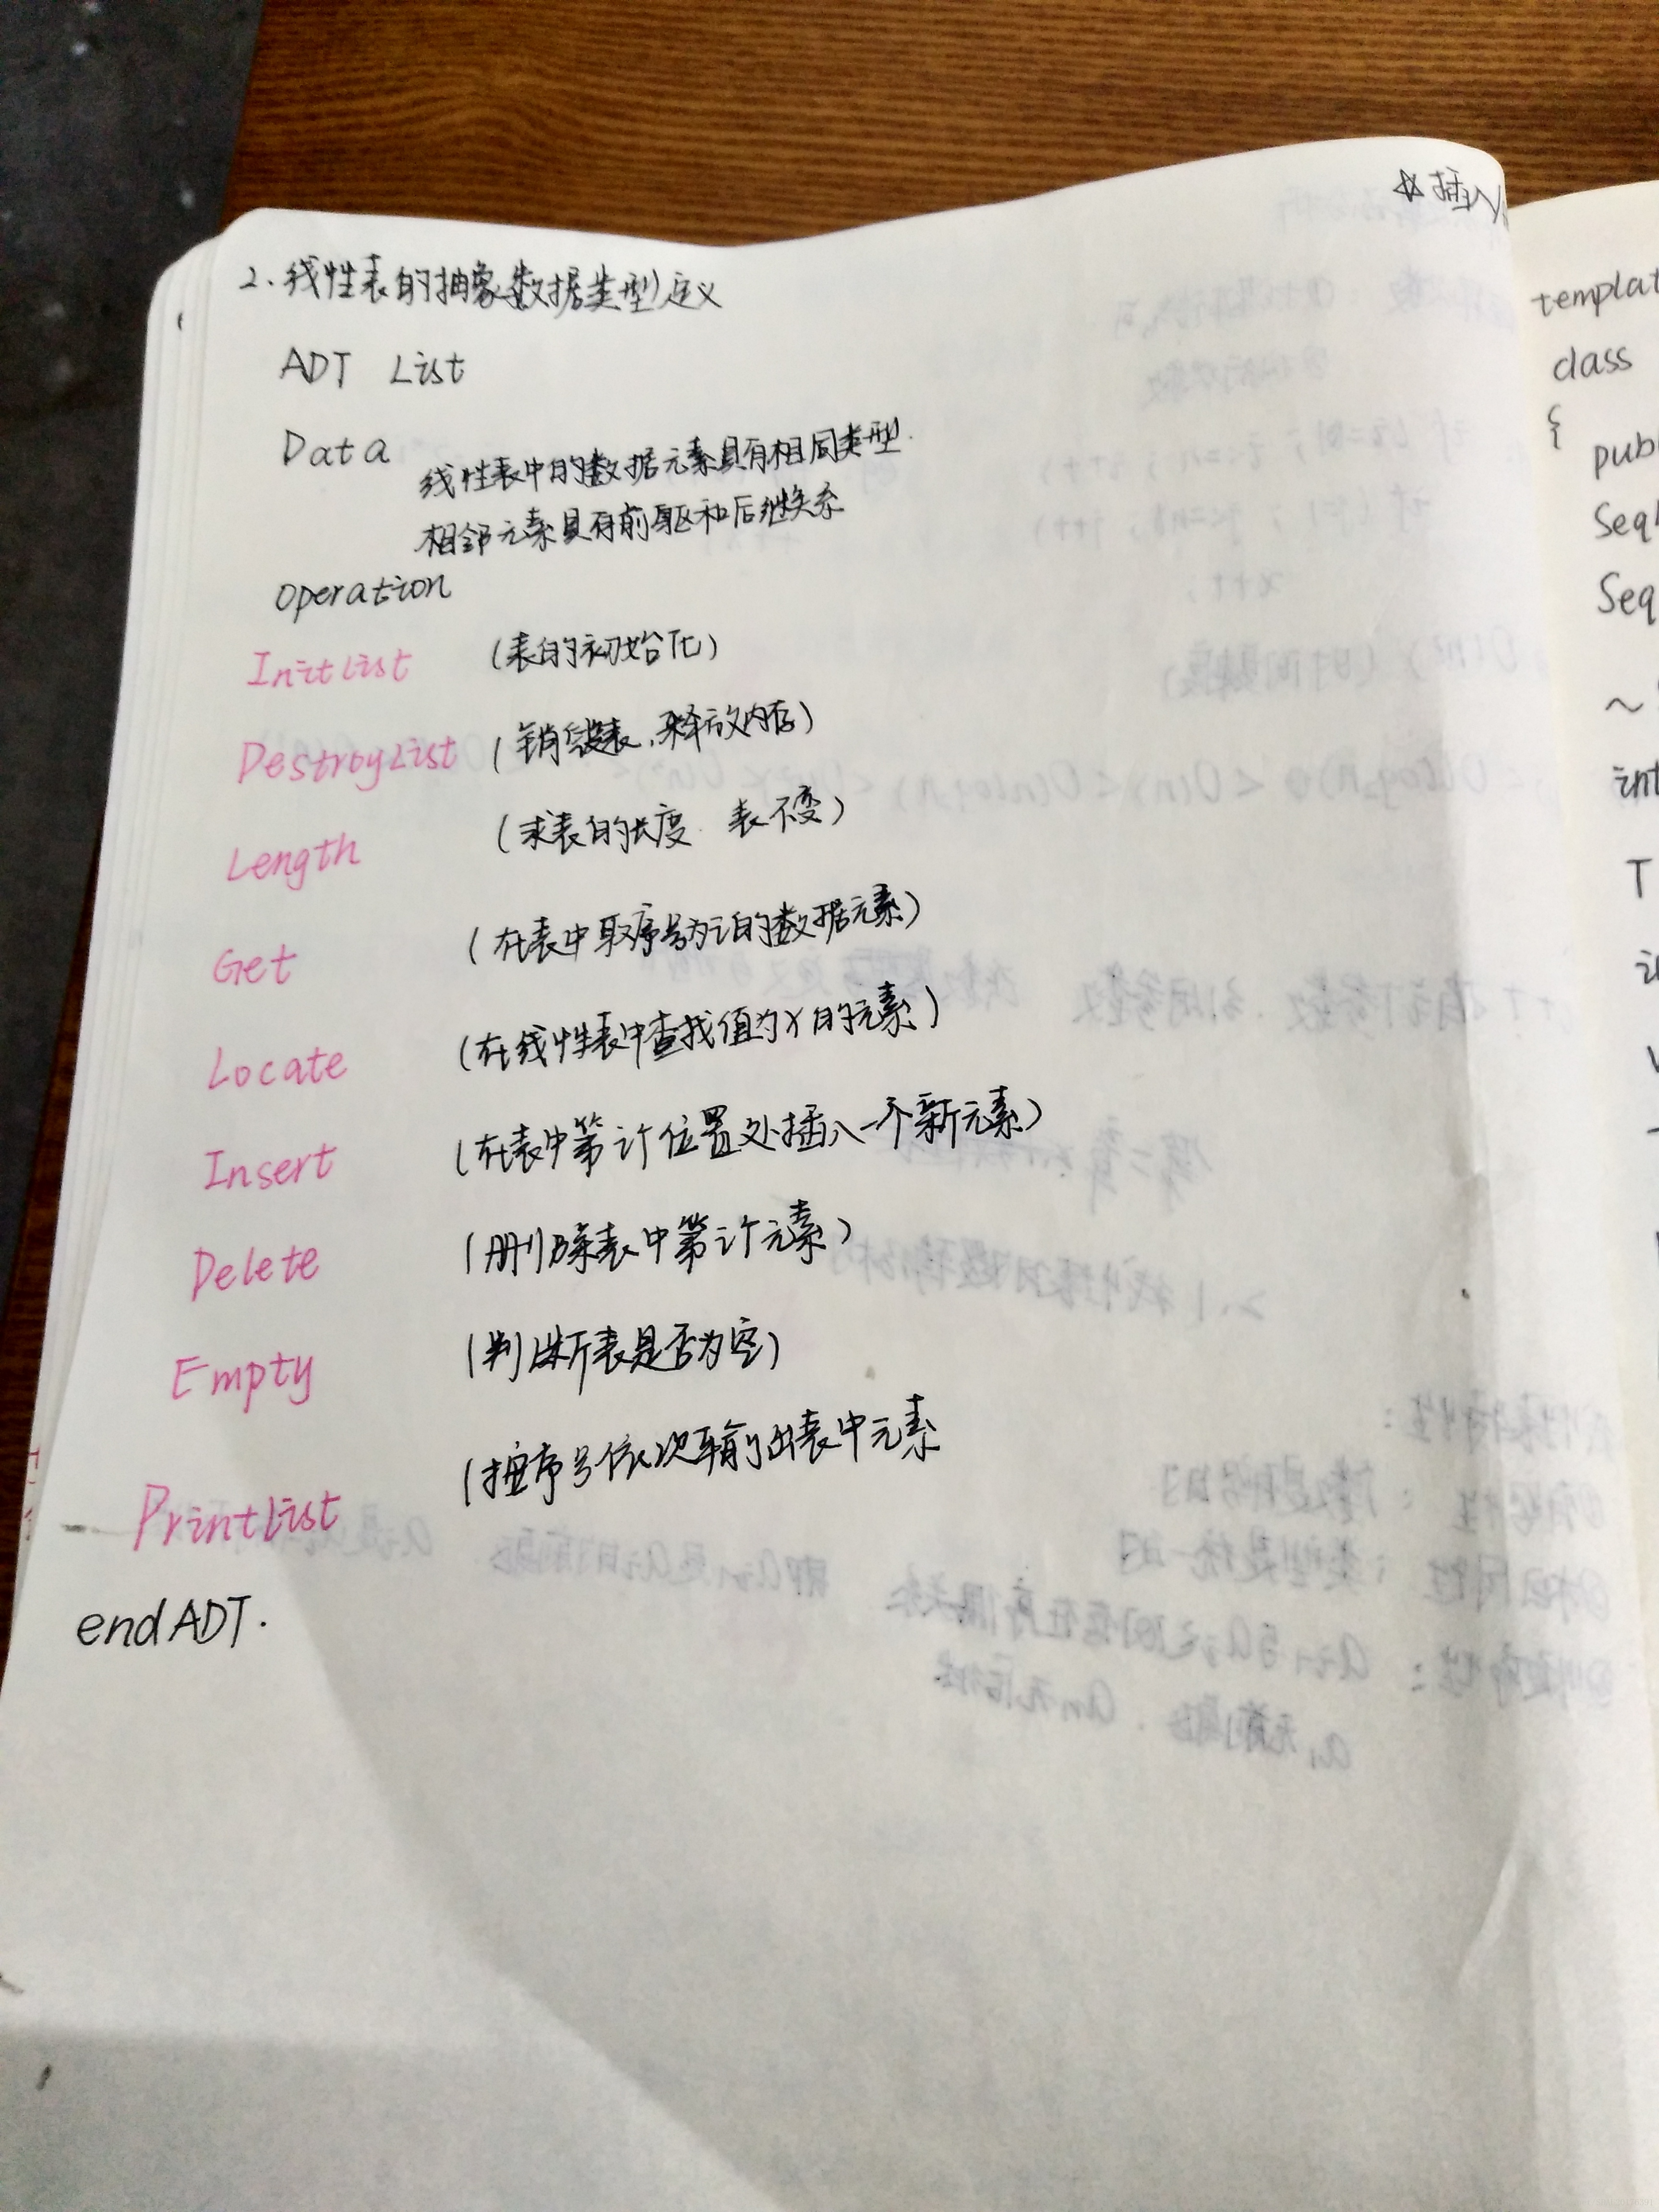 ☆插入
2.线性表的抽象数据类型定义
ADT List
Data
线性表中的数据元素具有相同类型.
相邻元素具有前驱和后继关系
operation
InitList (表的初始化)
DestroyList (销毁表,释放内存)
Length (求表的长度.表不变)
Get (在表中取序号为i的数据元素)
Locate (在线性表中查找值为x的元素)
Insert (在表中第i个位置处插入一个新元素)
Delete (删除表中第i个元素)
Empty (判断表是否为空)
PrintList (按序号依次输出表中元素
endADT.
templat
class
{
publ
Seq
Seq
~
int
T